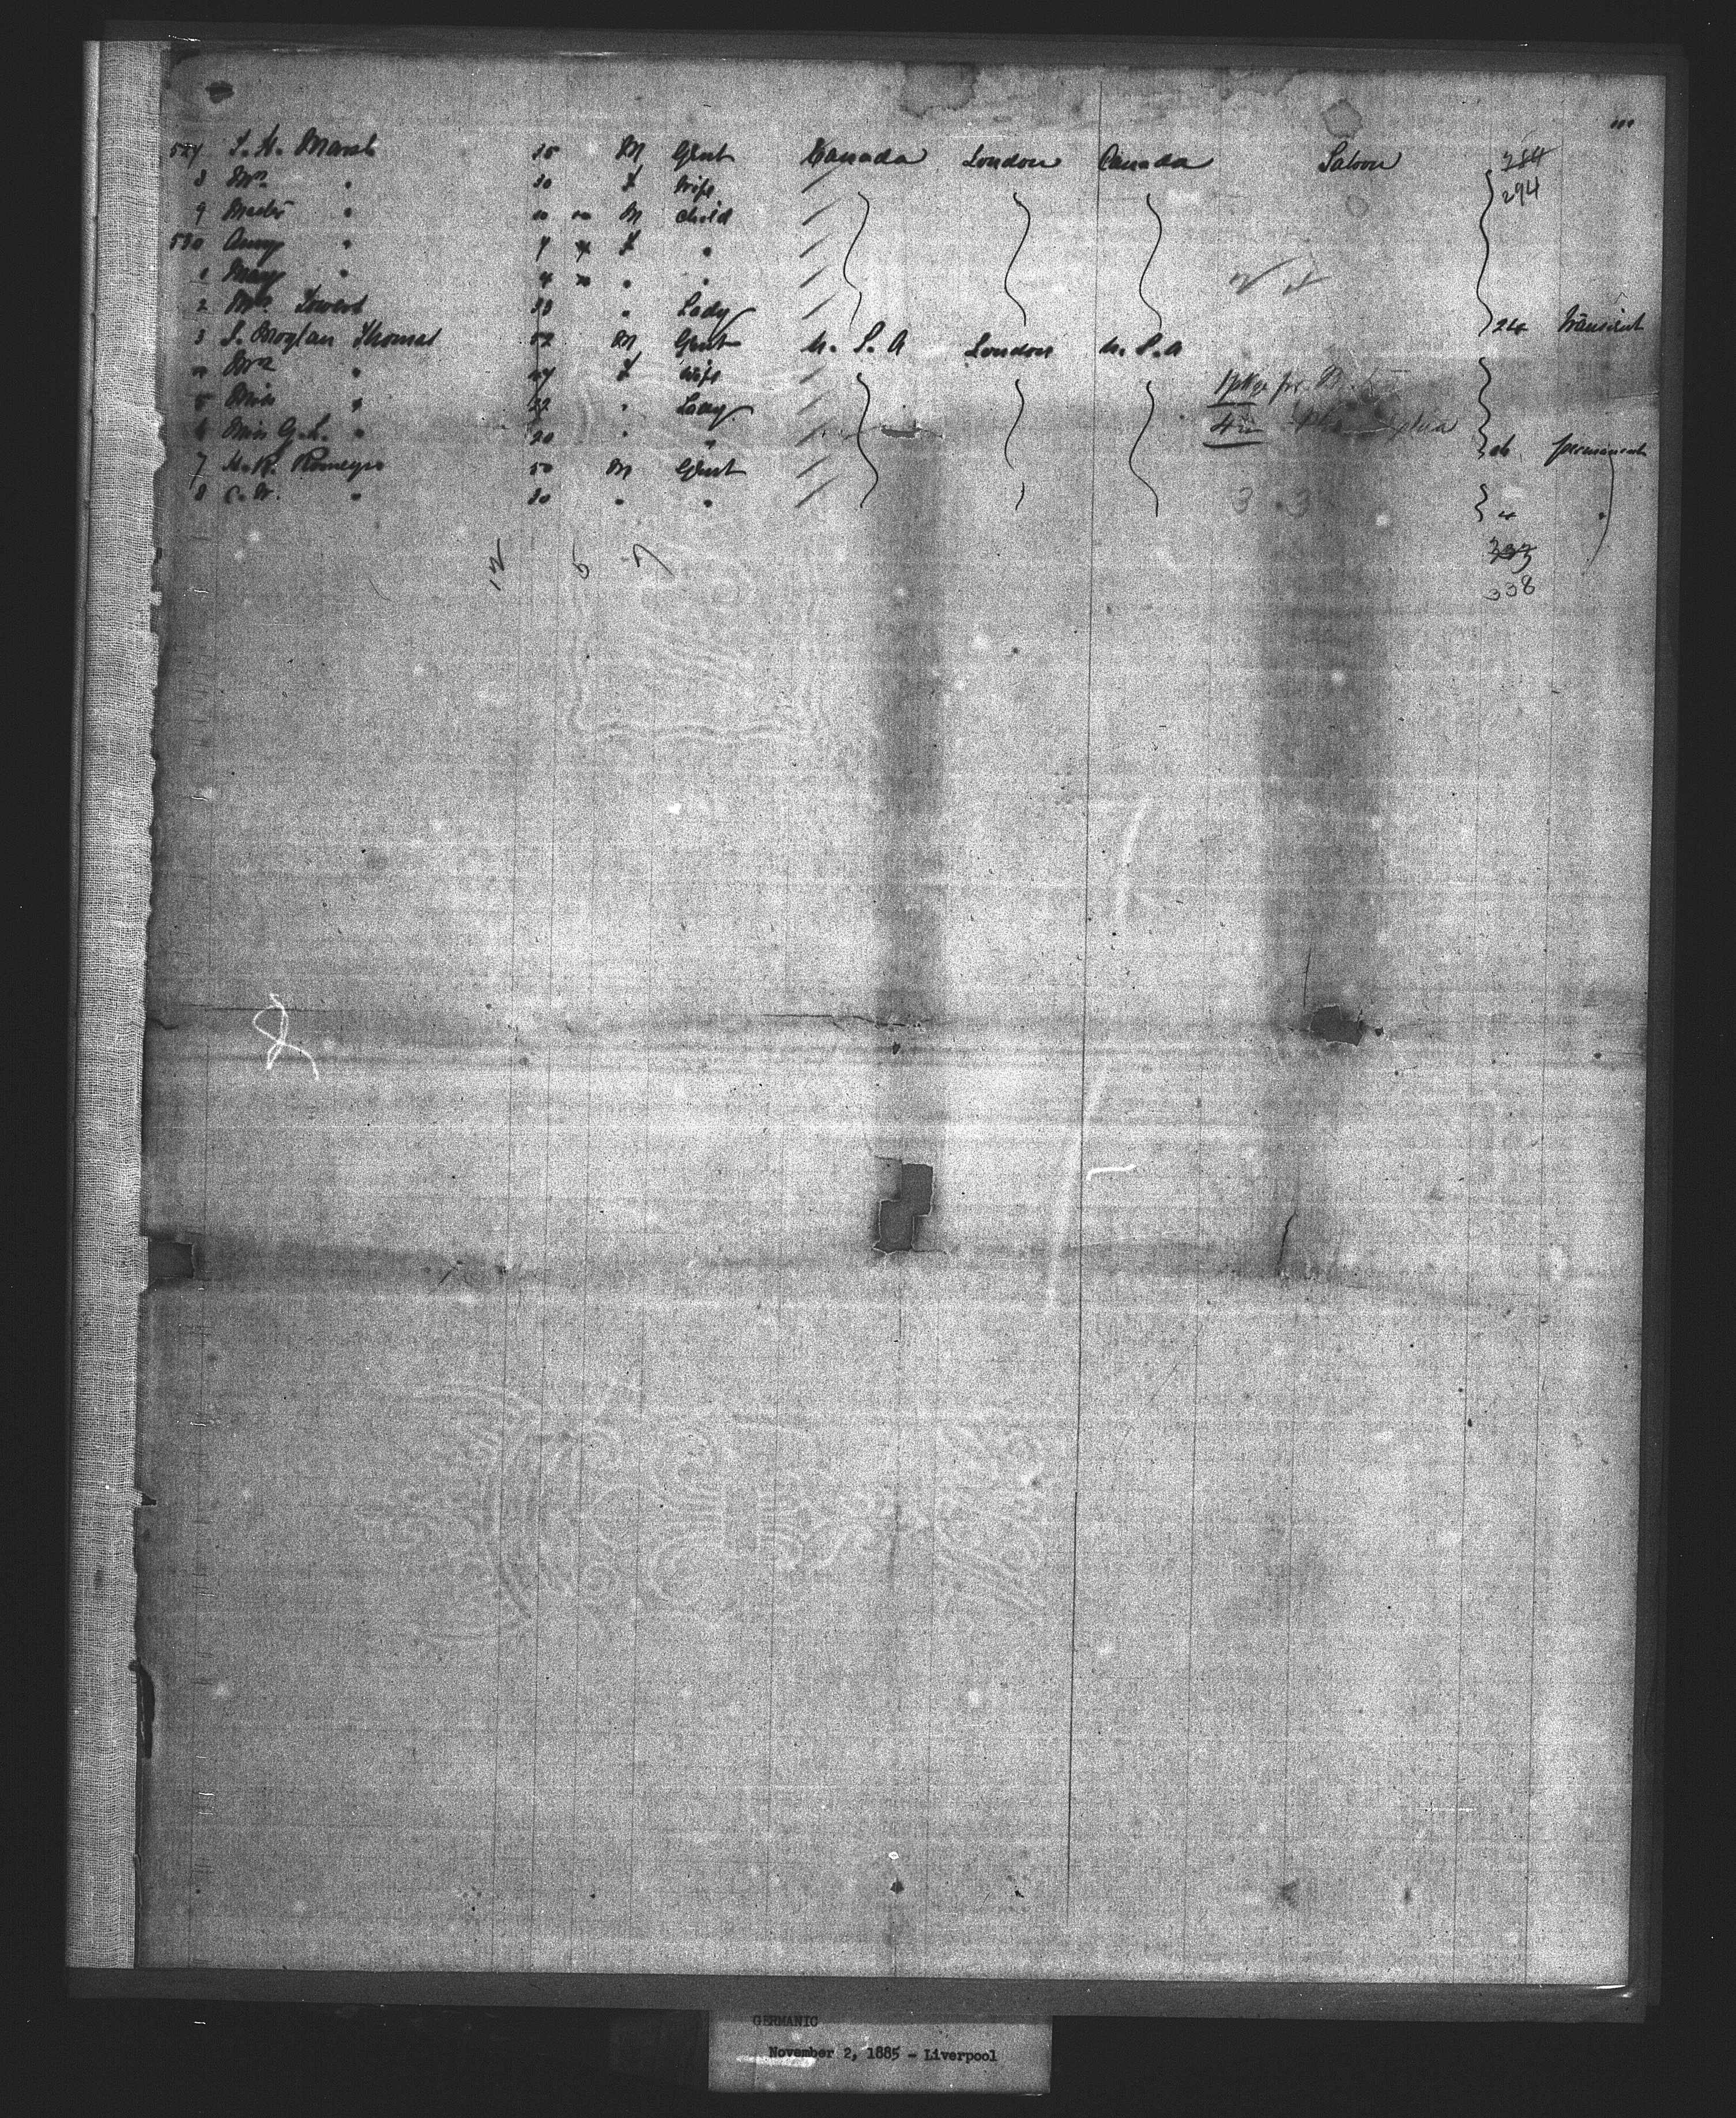 527 S. H. Marsh 35 M Gent Canada London Canada Saloon 284
8 Mrs " 30 F Wife 294
9 Master " M child
530 Amy " 7 F "
1 May " 4 " "
2 Mrs 33 " Lady 24 Transient
3 S. Thomas 52 M Gent U. S. A London U. S. A
4 Mrs " 47 F Wife
5 Miss " 22 " Lady
6 Miss G. L. " 20 " " permanent
7 H. R. Romeyn 50 M Gent
8 C. W. " 30 " " 3 3 4 "
12 5 7 333
338
GERMANIC
November 2, 1885 - Liverpool